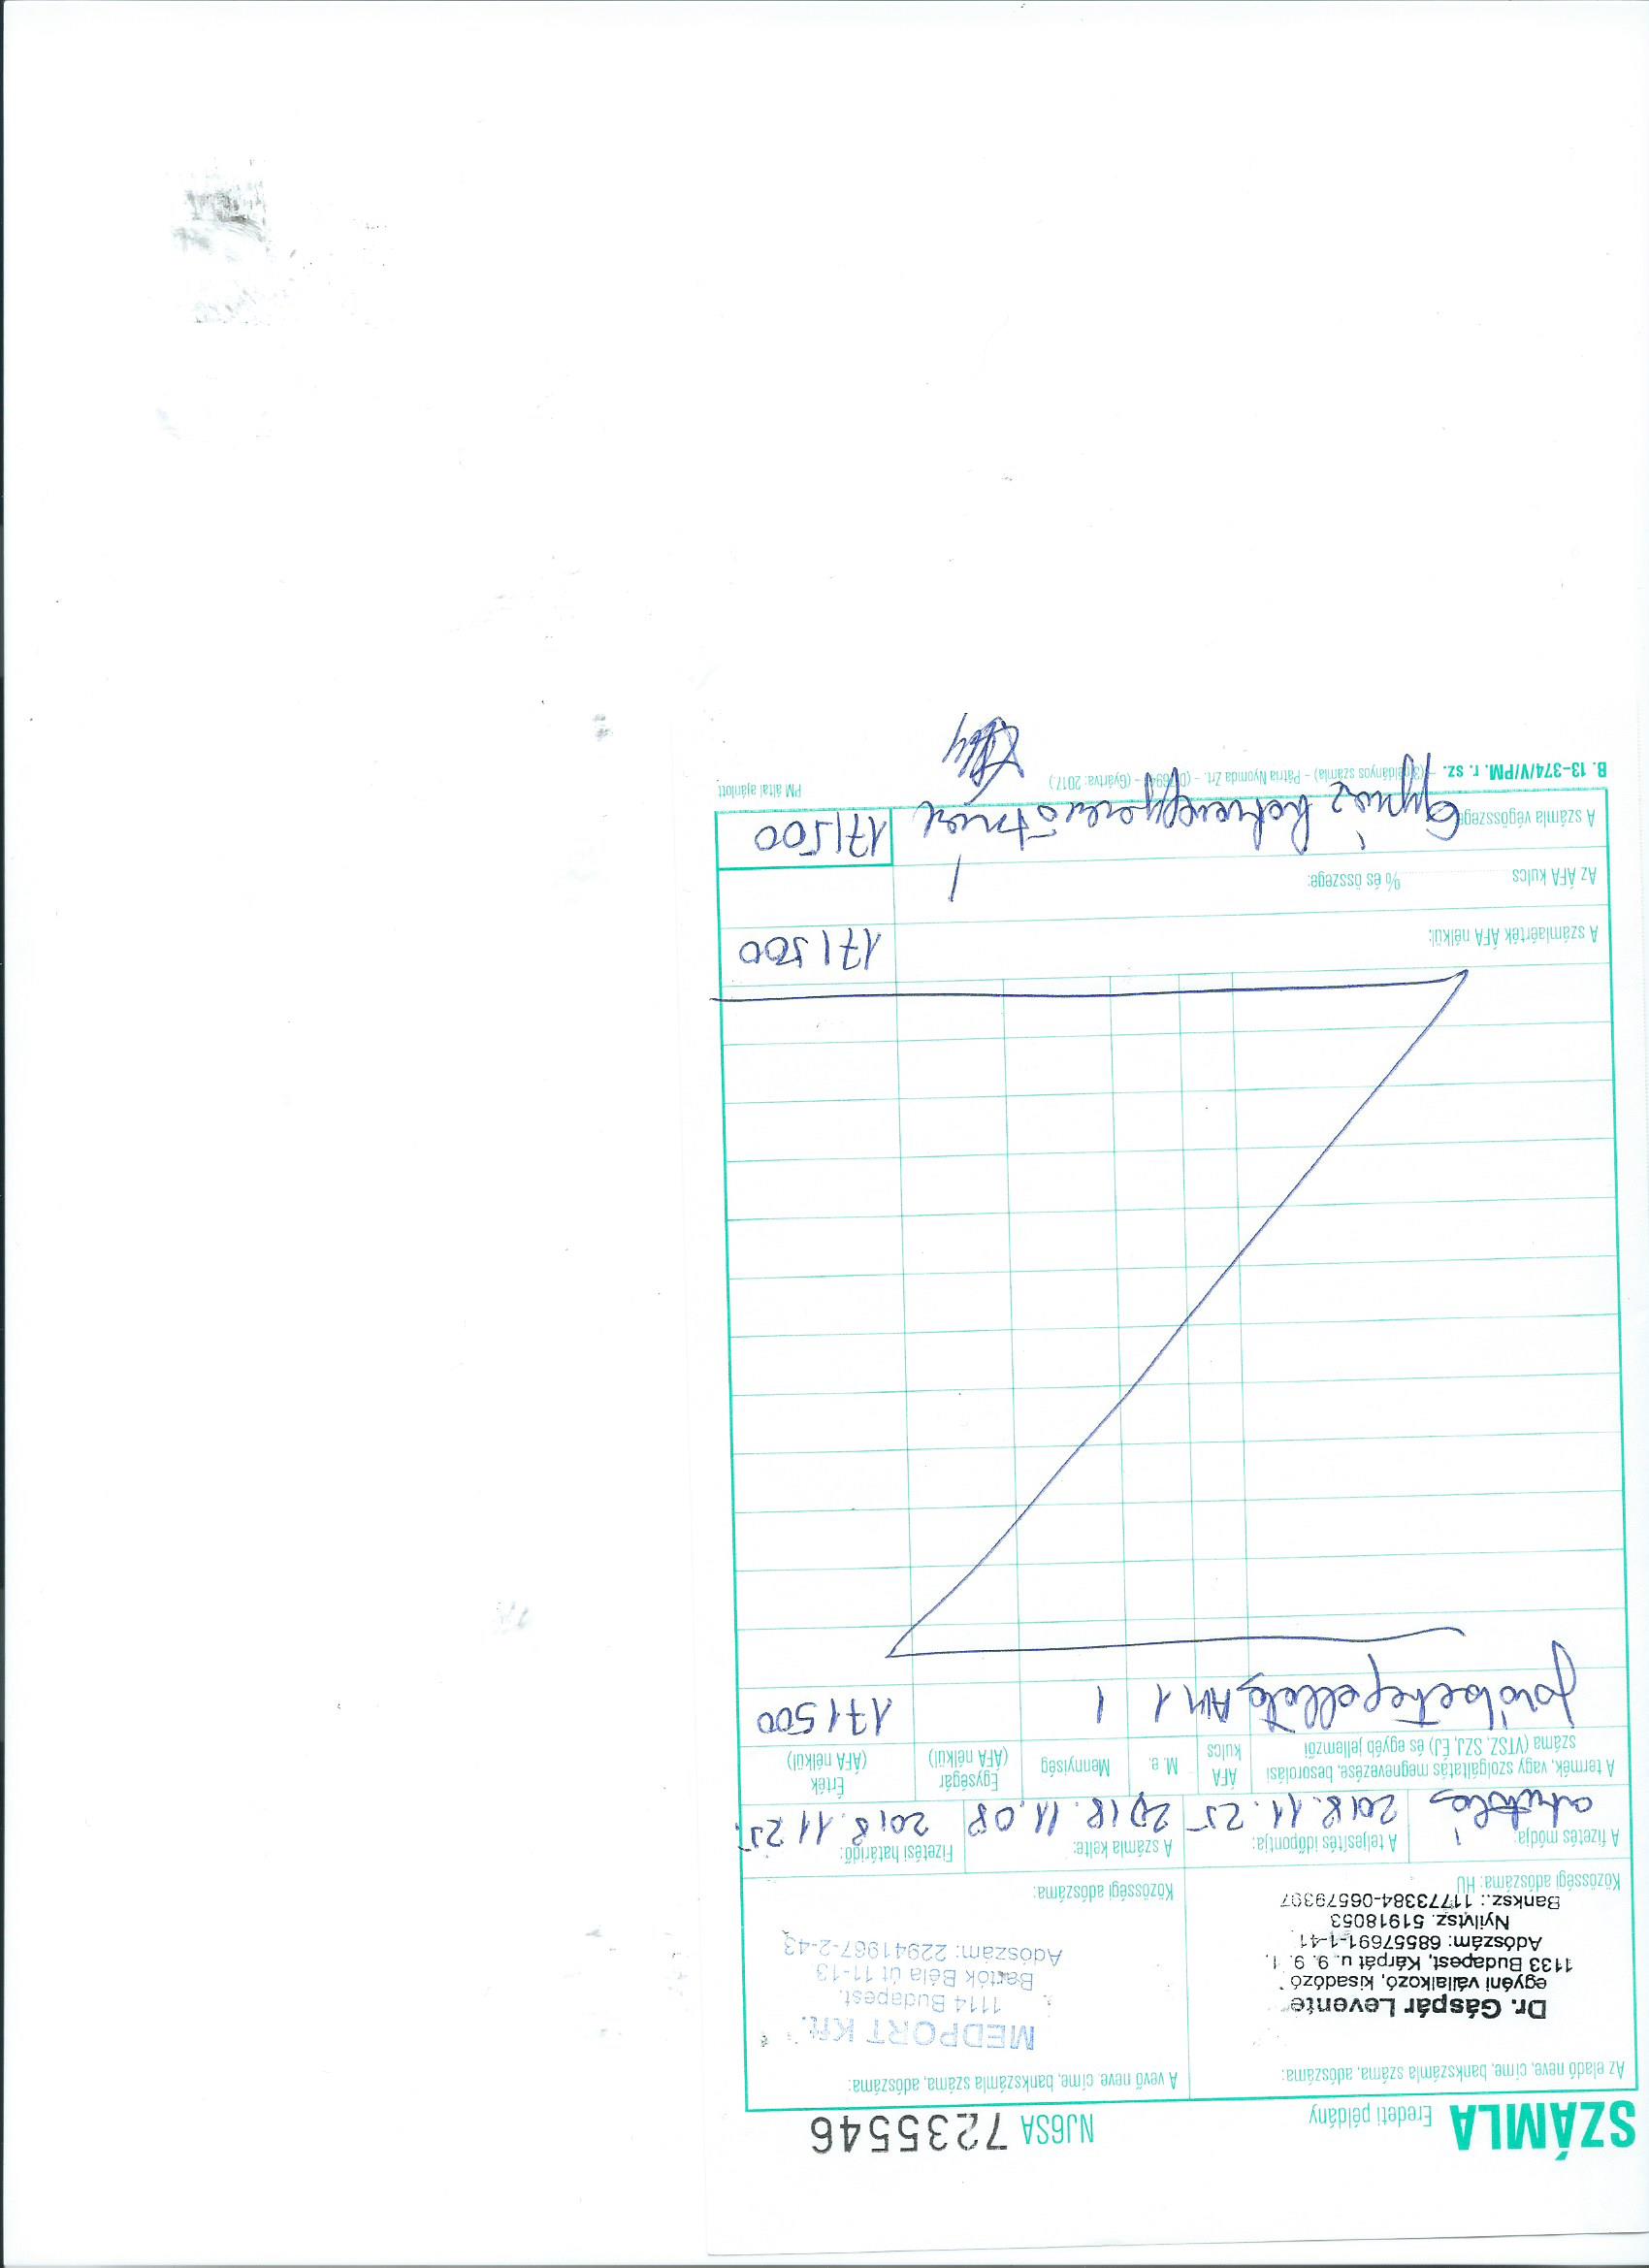 SZÁMLA Eredeti példány NJ6SA 7235546
Az eladó neve, címe, bankszámla száma, adószáma:
Dr. Gáspár Levente
egyéni vállalkozó, kisadózó
1133 Budapest, Kárpát u. 9. 9. 1.
Adószám: 68557691-1-41
Nyilvtsz. 51918053
Banksz.: 11773384-06579397
Közösségi adószáma: HU
A vevő neve, címe, bankszámla száma, adószáma:
MEDPORT Kft.
1114 Budapest.
Bartók Béla út 11-13
Adószám: 22941967-2-43
Közösségi adószáma:
A fizetés módja: A teljesítés időpontja: A számla kelte: Fizetési határidő:
átutalás 2018.11.25 2018.11.08 2018.11 25.
A termék, vagy szolgáltatás megnevezése, besorolási száma (VTSZ, SZJ, ÉJ) és egyéb jellemzői ÁFA kulcs M. e. Mennyiség Egységár (ÁFA nélkül) Érték (ÁFA nélkül)
járóbetegellátás AM 1 1 171500
A számlaérték ÁFA nélkül: 171500
Az ÁFA kulcs % és összege:
A számla végösszege 171500
B. 13-374/V/PM. r. sz. – (3 példányos számla) – Pátria Nyomda Zrt. – (Gyártva: 2017.) PM által ajánlott